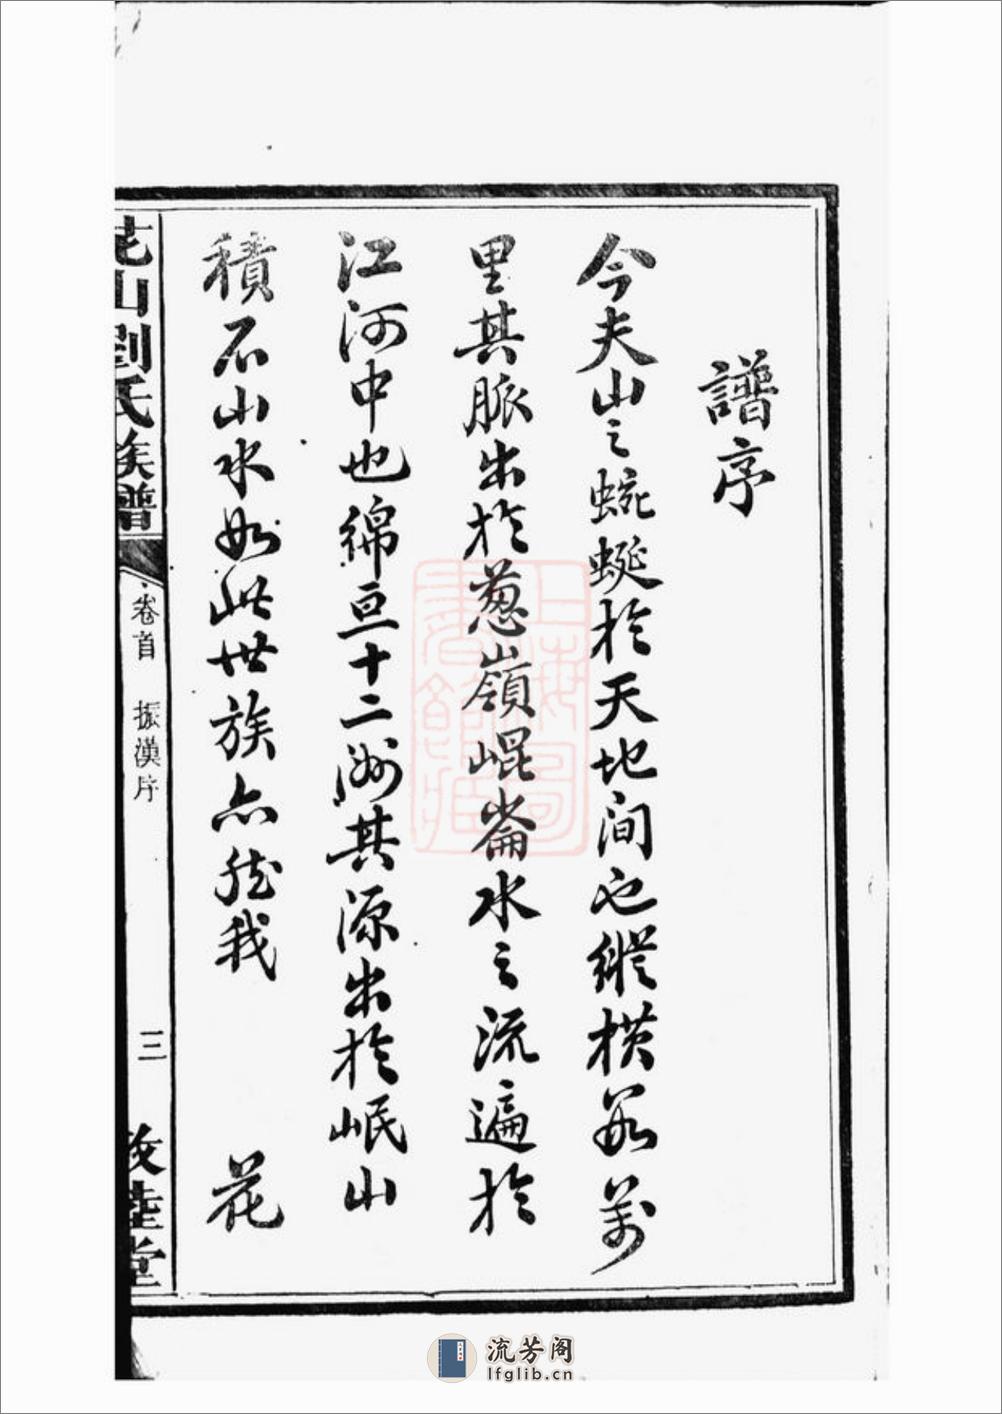 譜序
今夫山之蜿蜒於天地間也縱橫數萬
里其脈出於葱嶺崐崙水之流遍於
江河中也綿亘十二洲其源出於岷山
積石山水如此世族亦然我 花
花山劉氏族譜
卷首 振漢序
三 敦睦堂
上海圖書館藏
流芳阁
lfglib.cn